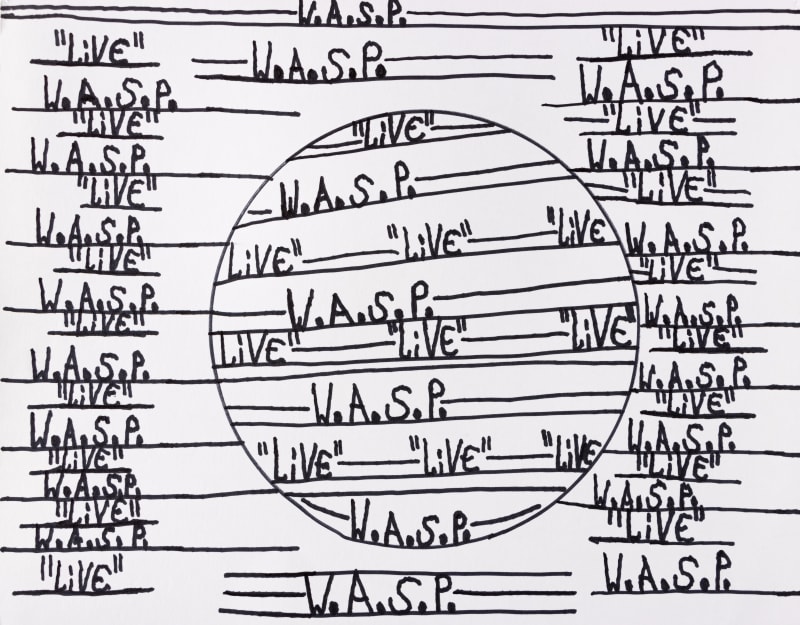 W.A.S.P.
"LiVE"
W.A.S.P.
"LiVE"
W.A.S.P.
"LiVE"
W.A.S.P.
"LiVE"
W.A.S.P.
"LiVE"
W.A.S.P.
"LiVE"
W.A.S.P.
"LiVE"
W.A.S.P.
"LiVE"
W.A.S.P.
"LiVE"
W.A.S.P.
"LiVE"
W.A.S.P.
LiVE" "LiVE" "LiVE
W.A.S.P.
LiVE" "LiVE" "LiVE"
W.A.S.P.
"LiVE" "LiVE" "LiVE
W.A.S.P.
W.A.S.P.
"LiVE"
W.A.S.P.
"LiVE"
W.A.S.P.
"LiVE"
W.A.S.P.
"LiVE"
W.A.S.P.
"LiVE"
W.A.S.P.
"LiVE"
W.A.S.P.
"LiVE"
W.A.S.P.
"LiVE"
W.A.S.P.